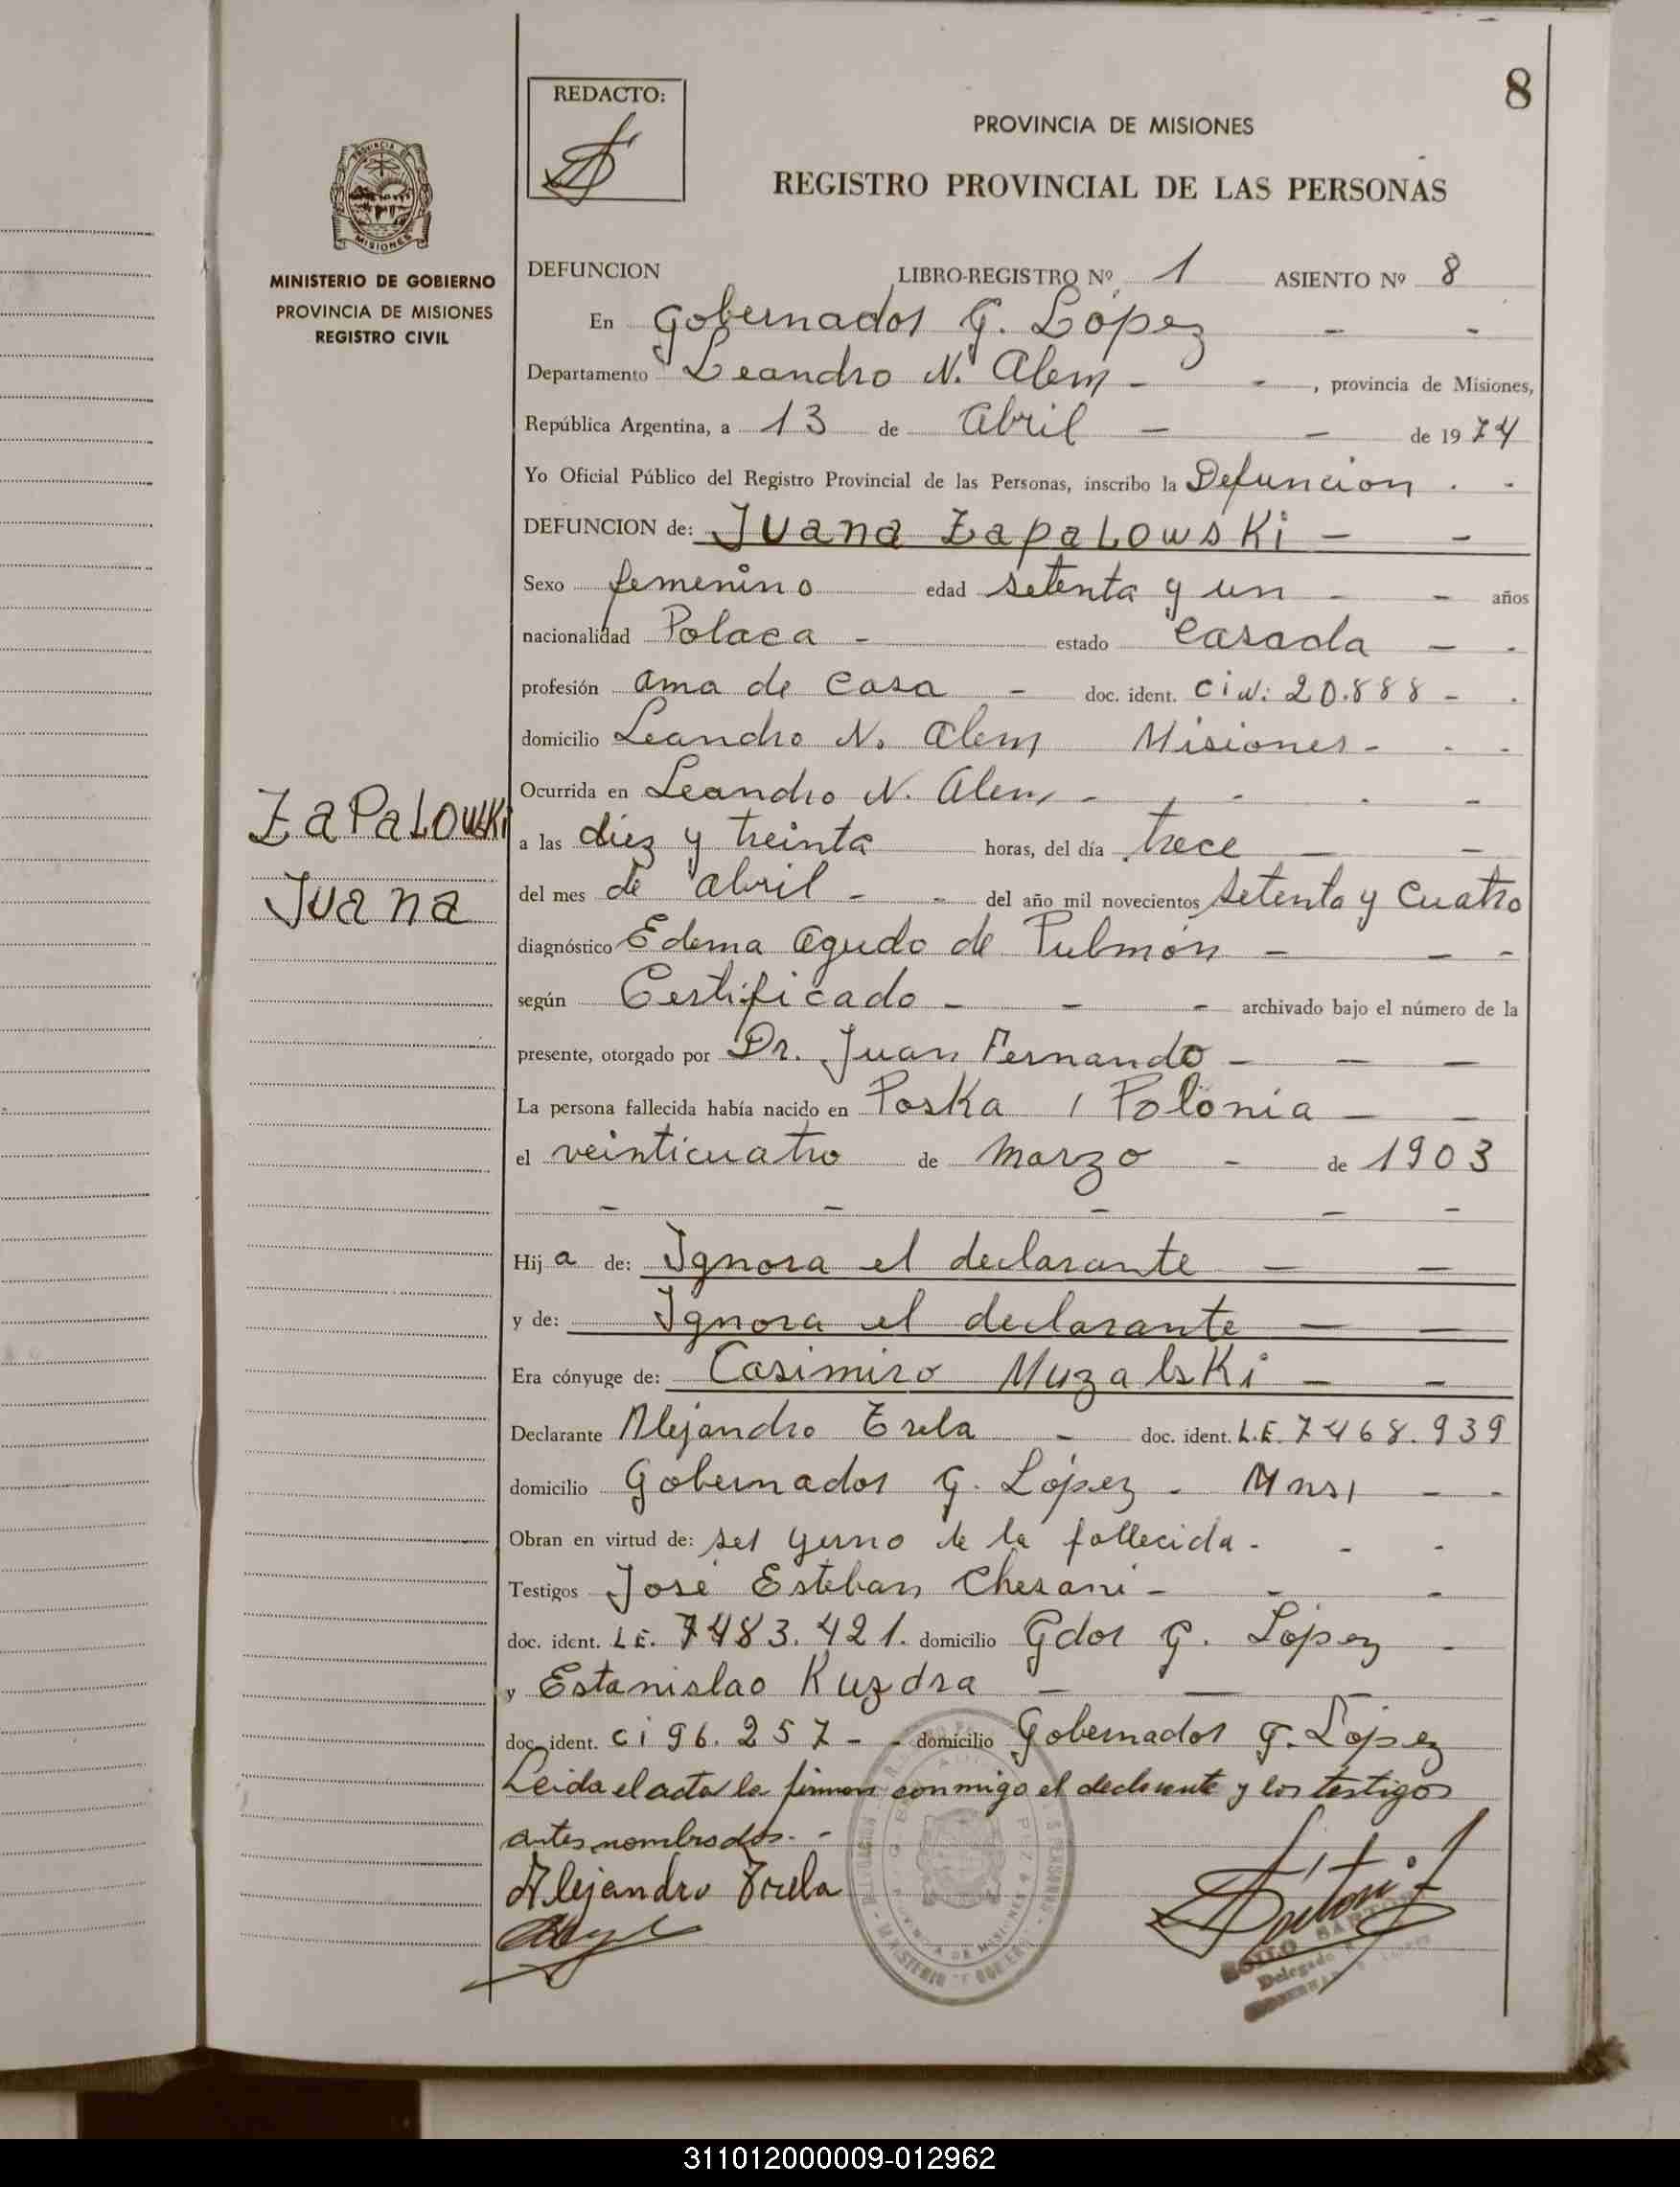 8
REDACTO:
PROVINCIA DE MISIONES
REGISTRO PROVINCIAL DE LAS PERSONAS
MISIONES
MINISTERIO DE GOBIERNO
PROVINCIA DE MISIONES
REGISTRO CIVIL
ZaPaLOWSKi
Juana
DEFUNCION LIBRO-REGISTRO Nº 1 ASIENTO Nº 8
En Gobernador G. López - -
Departamento Leandro N. Alem - - , provincia de Misiones,
República Argentina, a 13 de Abril - - de 1974
Yo Oficial Público del Registro Provincial de las Personas, inscribo la Defuncion . -
DEFUNCION de: Juana ZapaLowski - -
Sexo femenino edad setenta y un - - años
nacionalidad Polaca - estado Casada - -
profesión ama de casa - doc. ident. Ci N: 20.888 - .
domicilio Leandro N. Alem Misiones - . .
Ocurrida en Leandro N. Alem - - - . -
a las diez y treinta horas, del día trece - -
del mes de abril - - del año mil novecientos setenta y cuatro
diagnóstico Edema agudo de Pulmón - - -
según Certificado - - - archivado bajo el número de la
presente, otorgado por Dr. Juan Fernando - - -
La persona fallecida había nacido en Poska , Polonia - -
el veinticuatro de marzo - de 1903
- - - - -
Hij a de: Ignora el declarante - -
y de: Ignora el declarante - -
Era cónyuge de: Casimiro Muzalski - -
Declarante Alejandro Trela - doc. ident. L.E. 7468.939
domicilio Gobernador G. López - Mns, - -
Obran en virtud de: ser yerno de la fallecida - - -
Testigos José Esteban Chesani - - -
doc. ident. L.E. 7483.421. domicilio Gdor G. López -
y Estanislao Kuzdra - - -
doc. ident. Ci 96.257 - - domicilio Gobernador G. López
Leida el acta la firman conmigo el declarante y los testigos
antes nombrados. -
Alejandro Trela
Delegado
311012000009-012962